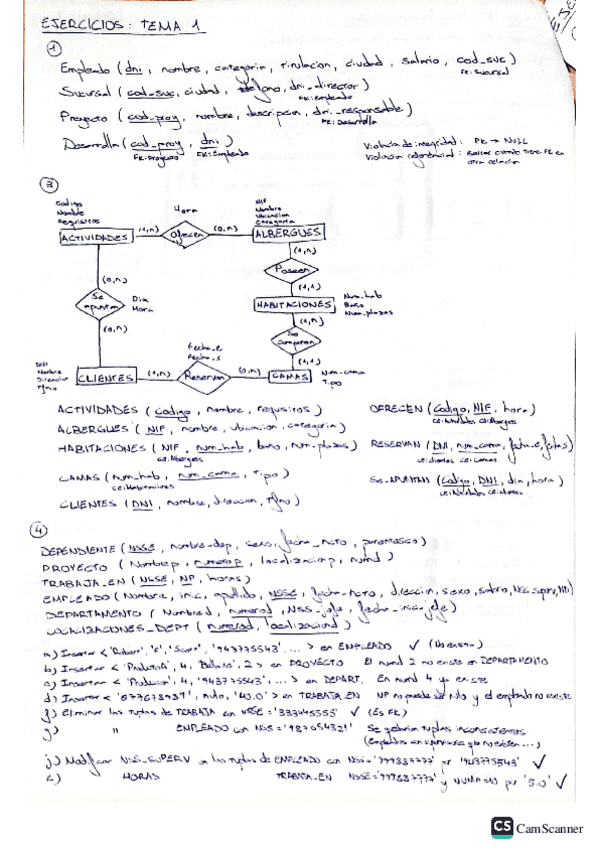 EJERCICIOS: TEMA 1
①
Empleado (dni, nombre, categoria, titulacion, ciudad, salario, cod_suc)
FK: Sucursal
Sucursal (cod_suc, ciudad, telefono, dni_director)
FK: Empleado
Proyecto (cod_proy, nombre, descripcion, dni_responsable)
FK: Desarrolla
Desarrolla (cod_proy, dni)
FK: Proyecto FK: Empleado
Violación de integridad: PK → NULL
Violación referencial: Borrar cuando tiene FK en
otra relación
③
Codigo
Nombre
Requisitos
Hora
NIF
Nombre
Ubicacion
Categoria
ACTIVIDADES (1,n) Ofrecen (0,n) ALBERGUES
(1,n)
Poseen
(0,n)
(1,1)
Se apuntan
Dia
Hora
HABITACIONES
Num_hab
Baño
Num_plazas
(0,n)
(1,n)
Se componen
Fecha_e
Fecha_s
(1,1)
DNI
Nombre
Direccion
Tfno
CLIENTES (1,n) Reservan (0,n) CAMAS
Num_cama
Tipo
ACTIVIDADES (Codigo, nombre, requisitos)
OFRECEN (Codigo, NIF, hora)
ALBERGUES (NIF, nombre, ubicacion, categoria)
HABITACIONES (NIF, num_hab, baño, num_plazas)
RESERVAN (DNI, num_cama, fecha_e, fecha_s)
CAMAS (num_hab, num_cama, tipo)
SE_APUNTAN (Codigo, DNI, dia, hora)
CLIENTES (DNI, nombre, direccion, tfno)
④
DEPENDIENTE (NSSE, nombre_dep, sexo, fecha_ncto, parentesco)
PROYECTO (Nombrep, numerop, localizacionp, numd)
TRABAJA_EN (NSSE, NP, horas)
EMPLEADO (Nombre, inic, apellido, NSSE, fecha_ncto, direccion, sexo,
DEPARTAMENTO (Nombred, numerod, NSS_jefe, fecha_inic_jefe)
LOCALIZACIONES_DEPT (numerod, localizaciond)
a) Insertar < 'Robert', 'F', 'Scott', '943775543', ... > en EMPLEADO ✓
b) Insertar < 'ProductoA', 4, 'Bellaire', 2 > en PROYECTO El numd 2 no existe en DEPARTAMENTO
c) Insertar < 'Produccion', 4, '943775543', ... > en DEPART. El numd 4 ya existe
d) Insertar < '677678989', nulo, '40.0' > en TRABAJA_EN NP no puede ser nulo y el empleado no existe
f) Eliminar las tuplas de TRABAJA con NSSE = '333445555' ✓ (Es FK)
g) " EMPLEADO con NSS = '987654321' Se quedarían tuplas inconsistentes
j) Modificar NSS_SUPERV en las tuplas de EMPLEADO con NSS = '999887777' por '943775543' ✓
k) HORAS TRABAJA_EN NSSE = '999887777' y NUMP = 10 por '5.0' ✓
CS CamScanner